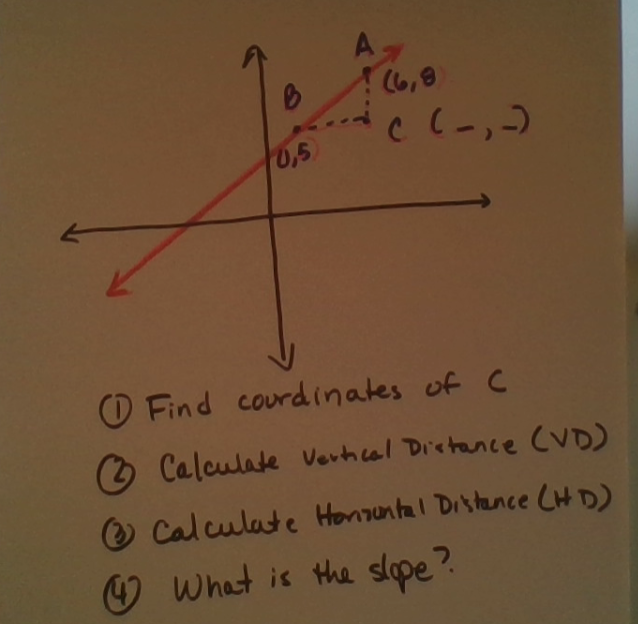 A
(6,8)
B
C (-,-)
,5)
① Find coordinates of C
② Calculate Vertical Distance (VD)
③ Calculate Horizontal Distance (HD)
④ What is the slope?